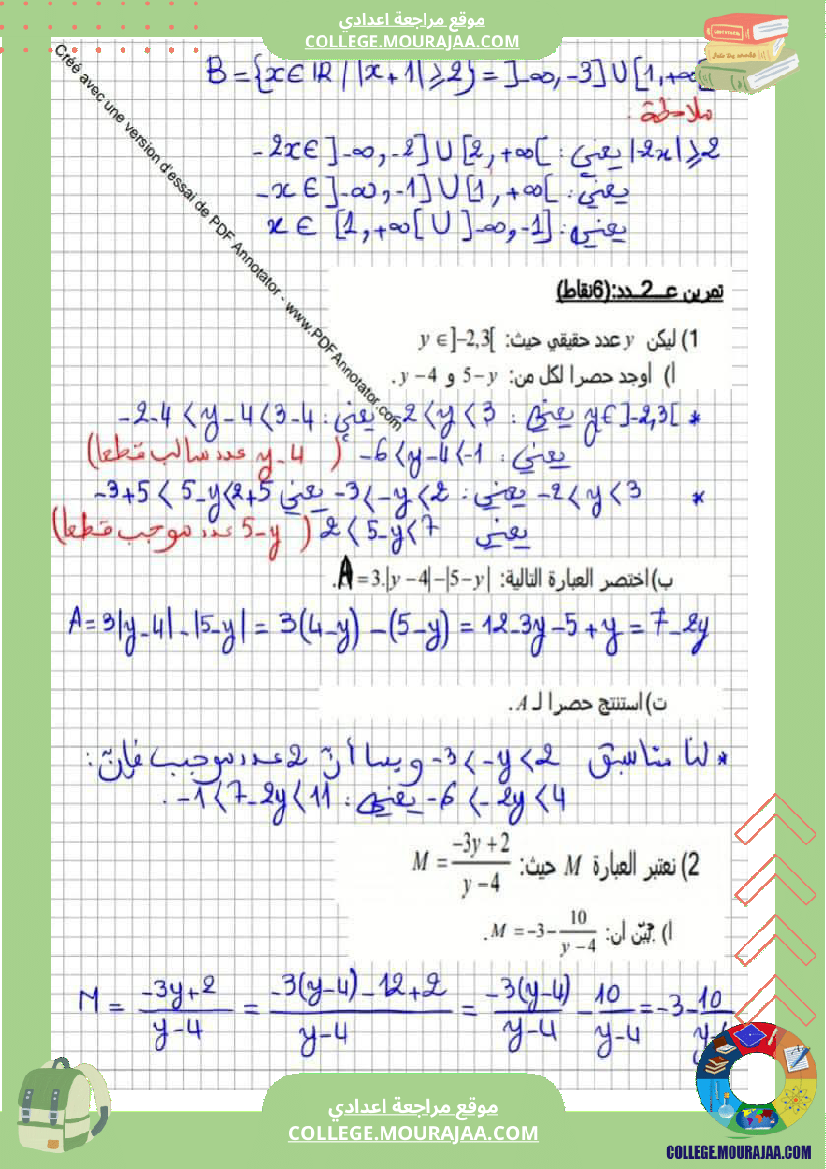 موقع مراجعة اعدادي
COLLEGE.MOURAJAA.COM
Créé avec une version d'essai de PDF Annotator - www.PDFAnnotator.com
B = {x ∈ IR / |x + 1| ⩾ 2} = ]-∞, -3] ∪ [1, +∞[
ملاحظة:
|-2x| ⩾ 2 يعني: -2x ∈ ]-∞, -2] ∪ [2, +∞[
يعني: -x ∈ ]-∞, -1] ∪ [1, +∞[
يعني: x ∈ [1, +∞[ ∪ ]-∞, -1]
تمرين عـــ2ــدد:(6نقاط)
1) ليكن y عدد حقيقي حيث: y ∈ ]-2,3[
أ) أوجد حصرا لكل من: 5-y و y-4.
* y ∈ ]-2,3[ يعني: -2 < y < 3 يعني: -2-4 < y-4 < 3-4
يعني: -6 < y-4 < -1 (y-4 عدد سالب قطعا)
* -2 < y < 3 يعني: -3 < -y < 2 يعني -3+5 < 5-y < 2+5
يعني 2 < 5-y < 7 (5-y عدد موجب قطعا)
ب) اختصر العبارة التالية: A = 3.|y-4|-|5-y|.
A = 3|y-4| - |5-y| = 3(4-y) - (5-y) = 12-3y-5+y = 7-2y
ت) استنتج حصرا لـ A.
* لنا مما سبق -3 < -y < 2 وبما أن 2 عدد موجب فإن:
-6 < -2y < 4 يعني: -1 < 7-2y < 11.
2) نعتبر العبارة M حيث: M = (-3y+2)/(y-4)
أ) بيّن أن: M = -3 - 10/(y-4).
M = (-3y+2)/(y-4) = (-3(y-4)-12+2)/(y-4) = (-3(y-4))/(y-4) - 10/(y-4) = -3 - 10/(y-4)
موقع مراجعة اعدادي
COLLEGE.MOURAJAA.COM
COLLEGE.MOURAJAA.COM